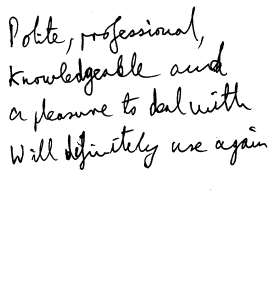 Polite, professional,
knowledgeable and
a pleasure to deal with
Will definitely use again